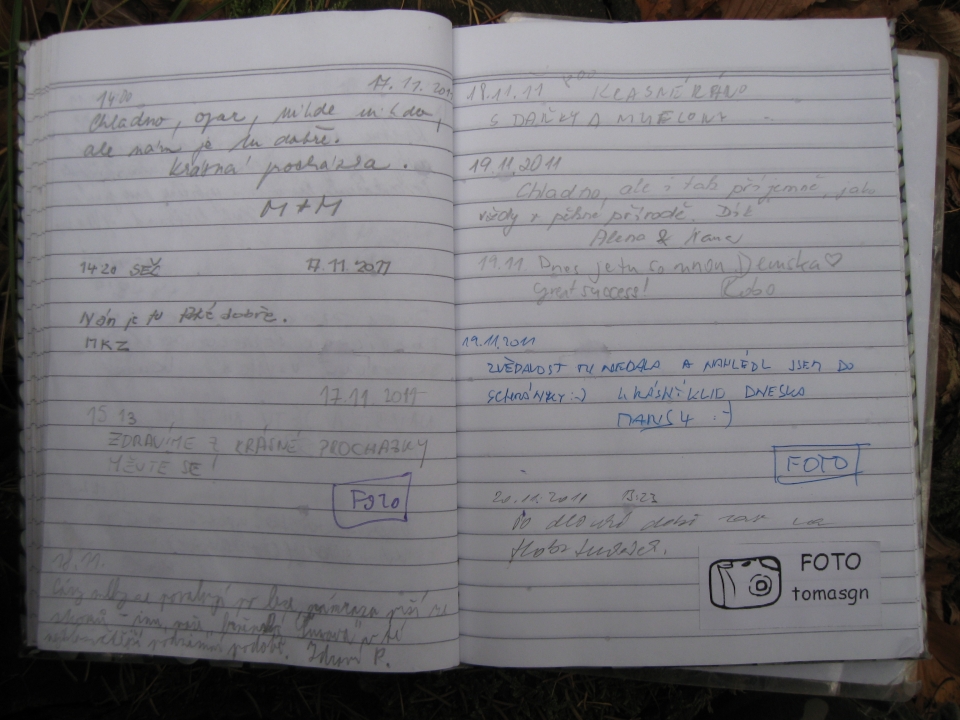 14:00 17.11.2011
Chladno, opar, nikde nikdo,
ale nám je tu dobře.
Krásná procházka.
M + M
1420 SEČ 17.11.2011
Nám je tu také dobře.
MKZ
17.11.2011
15.13
ZDRAVÍME Z KRÁSNÉ PROCHÁZKY
MĚJTE SE!
FOTO
18.11.
se povalují po lese, námraza
Šumava v té
podobě. Zdraví P.
18.11.11 KRÁSNÉ RÁNO
S
19.11.2011
Chladno, ale i tak příjemně, jako
vždy v pěkné přírodě. Dík
Alena & Hana
19.11. Dnes je tu se mnou Deniska ♡
Great success! Kubo
19.11.2011
ZVĚDAVOST MI NEDALA A NAHLÉDL JSEM DO
SCHRÁNKY :-) KRÁSNÝ KLID DNESKA
MANS4 :-)
FOTO
20.11.2011 13:23
Po dlouhé době zase na
FOTO
tomasgn